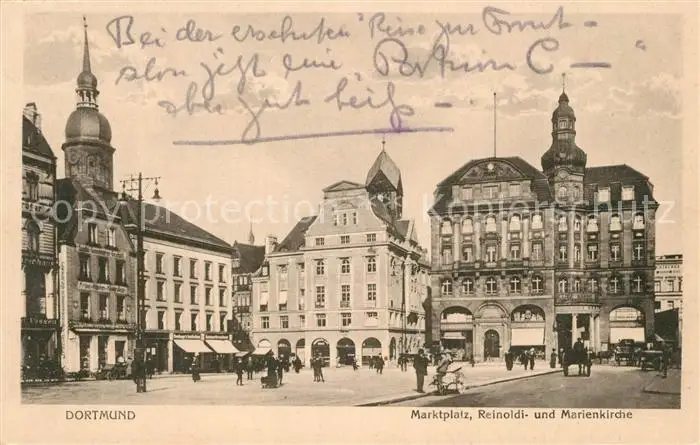 Bei der ersehnten Reise zur Front
schon gibt eine
aber gut heiß
DORTMUND
Marktplatz, Reinoldi- und Marienkirche